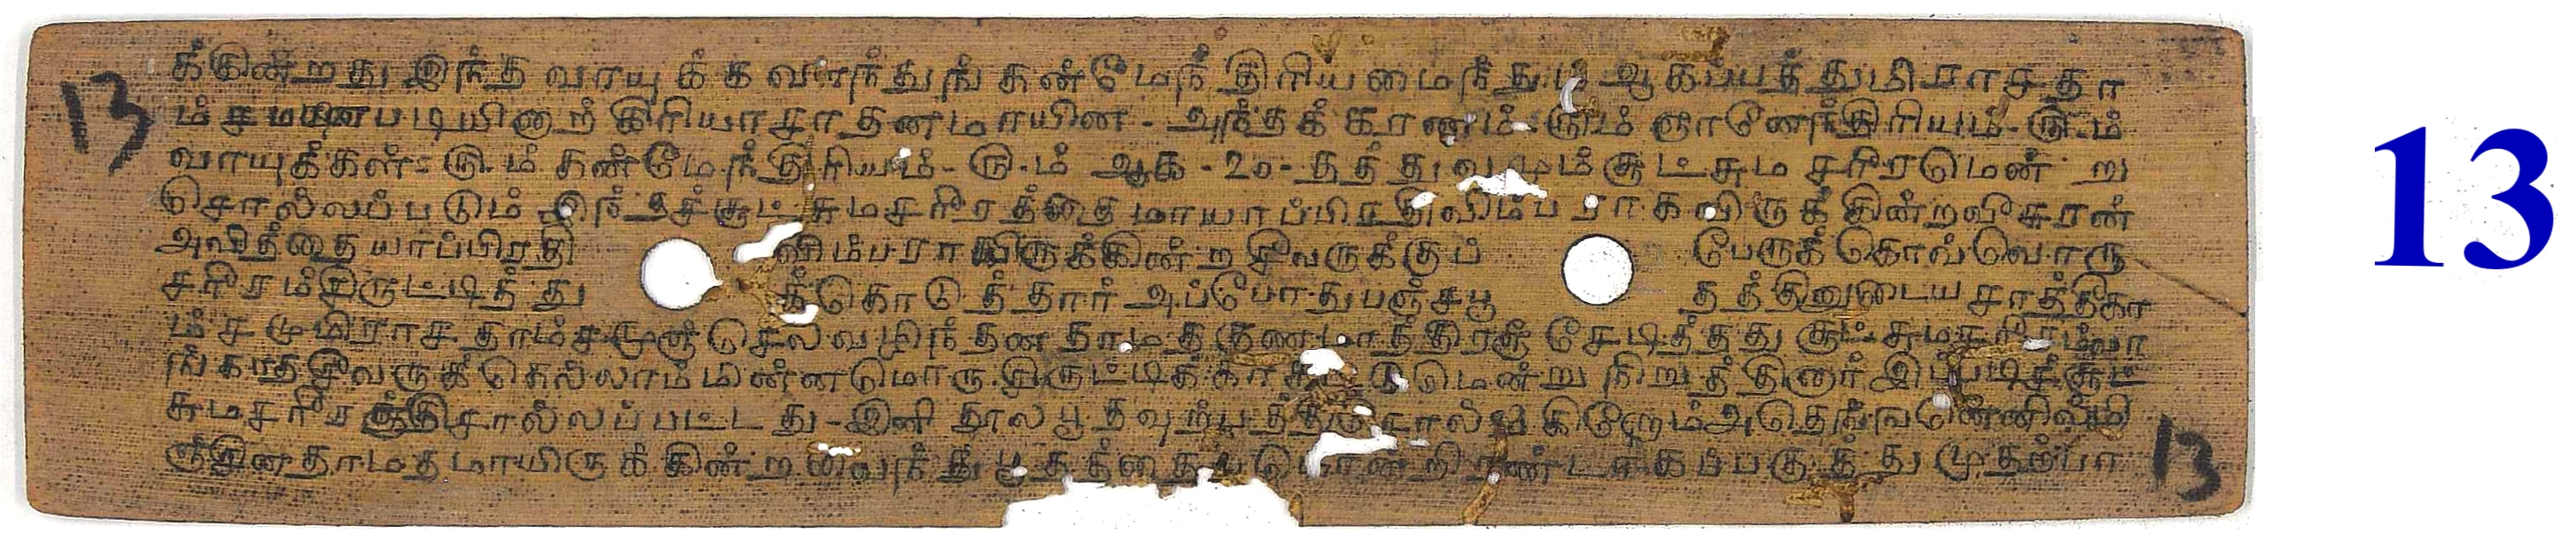 13
க்கின்றது இந்த வாயுக்கவைந்துங் கன்மேந்திரியமைந்தும் ஆகப்பத்துமிராசதா
ம்சமானபடியினாற் கிரியாசாதனமாயின - அந்தக் கரணம் - ரு - ம் ஞானேந்திரியம் - ரு - ம்
வாயுக்கள் - ரு - ம் கன்மேந்திரியம் - ரு - ம் ஆக - 20 - தத்துவமும் சூட்சும சரீரமென்று
சொல்லப்படும் இந்தச்சூட்சுமசரீரத்தை மாயாப்பிரதிவிம்பராகவிருக்கின்றவீசுரன்
அவித்தையாப்பிரதி விம்பராகவிருக்கின்ற சீவருக்குப் பேருக்கொவ்வொரு
சரீரம்சிருட்டித்து க்கொடுத்தார் அப்போதுபஞ்சபூ தத்தினுடைய சாத்தீகா
ம்சமுமிராசதாம்சமுஞ் செலவழிந்தன தாமத குணமாத்திரஞ் சேடித்தது சூட்சுமசரீரம்வா
ங்காதசீவருக்கெல்லாம் மின்னமொரு சிருட்டிக் மென்று நிறுத்தினார் இப்படிச் சூட்
சுமசரீரஞ்சொல்லப்பட்டது - இனி தூலபூதவுற்பத்தி சொல்லுகிறோம் அதெங்ஙனெனில்மி
ஞ்சின தாமதமாயிருக்கின்றவைந்து பூதத்தை யொன்றிரண்டாகப்பகுத்து முதற்பா
13
13